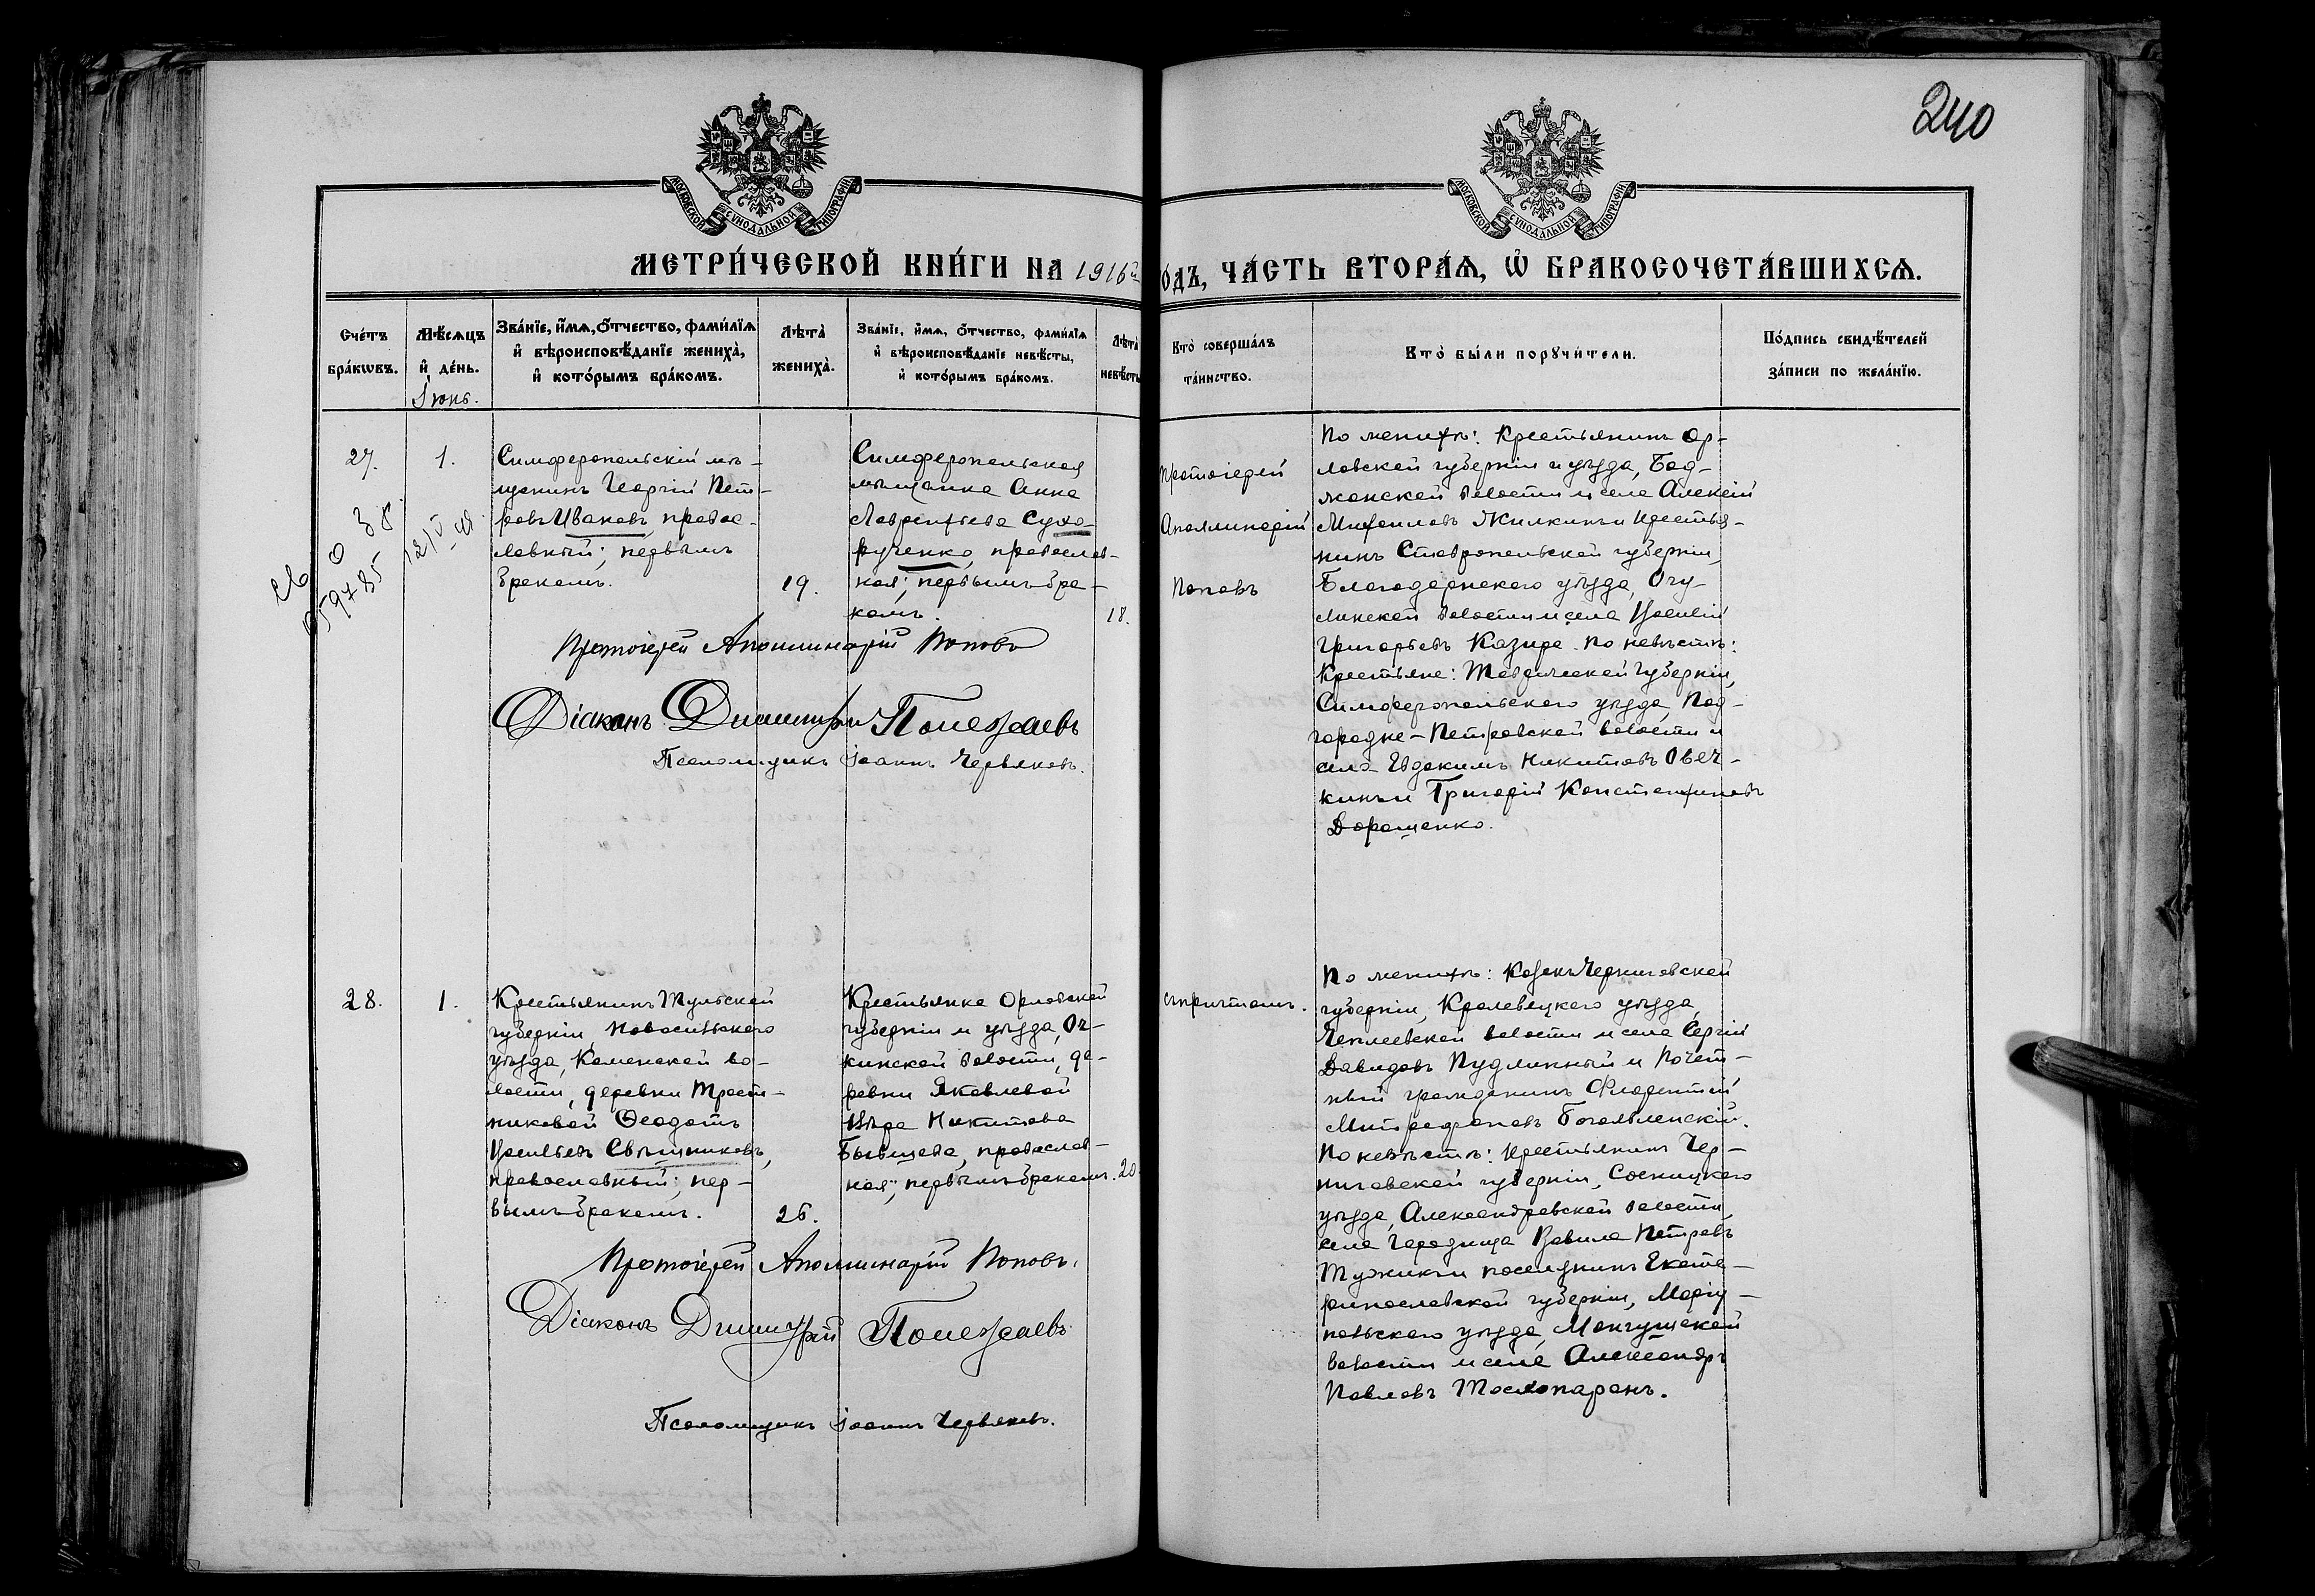 240
МОСКОВСКОЙ СѴНОДАЛЬНОЙ ТИПОГРАФІИ
МОСКОВСКОЙ СѴНОДАЛЬНОЙ ТИПОГРАФІИ
МЕТРИ́ЧЕСКОЙ КНИ́ГИ НА 1916й
ОДЪ, ЧА́СТЬ ВТОРА́Ѧ, Ѡ БРАКОСОЧЕТА́ВШИХСѦ.
Сче́тъ бра́кѡвъ.
Мѣ́сѧцъ и де́нь.
Зва́нїе, и́мѧ, ѻ́тчество, фами́лїѧ
и вѣроисповѣ́данїе жениха̀,
и кото́рымъ бра́комъ.
Лѣта̀ жениха̀.
Зва́нїе, и́мѧ, ѻ́тчество, фами́лїѧ
и вѣроисповѣ́данїе невѣ́сты,
и кото́рымъ бра́комъ.
Лѣта̀ невѣ́сты
Кто̀ соверша́лъ та́инство.
Кто̀ бы́ли порꙋчи́тели.
По́дпись свидѣ́телей
за́писи по жела́нїю.
Іюнь.
27.
1.
Симферопольскій мѣ-
щанинъ Георгій Пет-
ровъ Ивановъ, правос-
лавный; первымъ
бракомъ.
19.
Симферопольская
мѣщанка Анна
Лаврентьева Сухо-
рученко, православ-
ная; первымъ бра-
комъ.
18.
Протоіерей
Аполлинарій
Поповъ
По женихѣ: Крестьянинъ Ор-
ловской губерніи и уѣзда, Бод-
жанской волости и села Алексій
Михаиловъ Жилкинъ и крестья-
нинъ Ставропольской губерніи,
Благодарнскаго уѣзда, Огу-
линской волости и села Василій
Григорьевъ Казыра. По невѣстѣ:
Крестьяне: Таврической губерніи,
Симферопольскаго уѣзда, Под-
городне-Петровской волости и
села Евдокимъ Никитовъ Овеч-
кинъ и Григорій Константиновъ
Дорошенко.
Протоіерей Аполлинарій Поповъ
Діаконъ Димитрій Полежаевъ
Псаломщикъ Іоаннъ Червяковъ.
28.
1.
Крестьянинъ Тульской
губерніи, Новосильскаго
уѣзда, Каменской во-
лости, деревни Трост-
никовой Ѳеодотъ
Васильевъ Свѣшниковъ,
православный; пер-
вымъ бракомъ.
26.
Крестьянка Орловской
губерніи и уѣзда, Оч-
кинской волости, де-
ревни Яковлевой
Вѣра Никитова
Бывшева, православ-
ная; первымъ бракомъ.
20
съ причтомъ.
По женихѣ: Козакъ Черниговской
губерніи, Кролевецкаго уѣзда,
Чеплеевской волости и села Сергій
Давидовъ Пудлинный и Почет-
ный гражданинъ Флорентій
Митрофановъ Богоявленскій.
По невѣстѣ: крестьянинъ Чер-
ниговской губерніи, Сосницкаго
уѣзда, Александровской волости,
села Городища Вавила Петровъ
Тужикъ и поселянинъ Екате-
ринославской губерніи, Маріу-
польскаго уѣзда, Мангушской
волости и села Александръ
Павловъ Тослопаранъ.
Протоіерей Аполлинарій Поповъ.
Діаконъ Димитрій Полежаевъ
Псаломщикъ Іоаннъ Червяковъ.